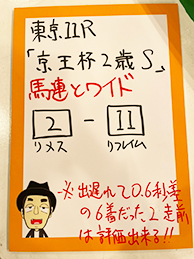 東京11R
「京王杯2歳S」
馬連とワイド
2 - 11
リメス リフレイム
-※出遅れて0.6秒差
の6着だった2走前
は評価出来る!!